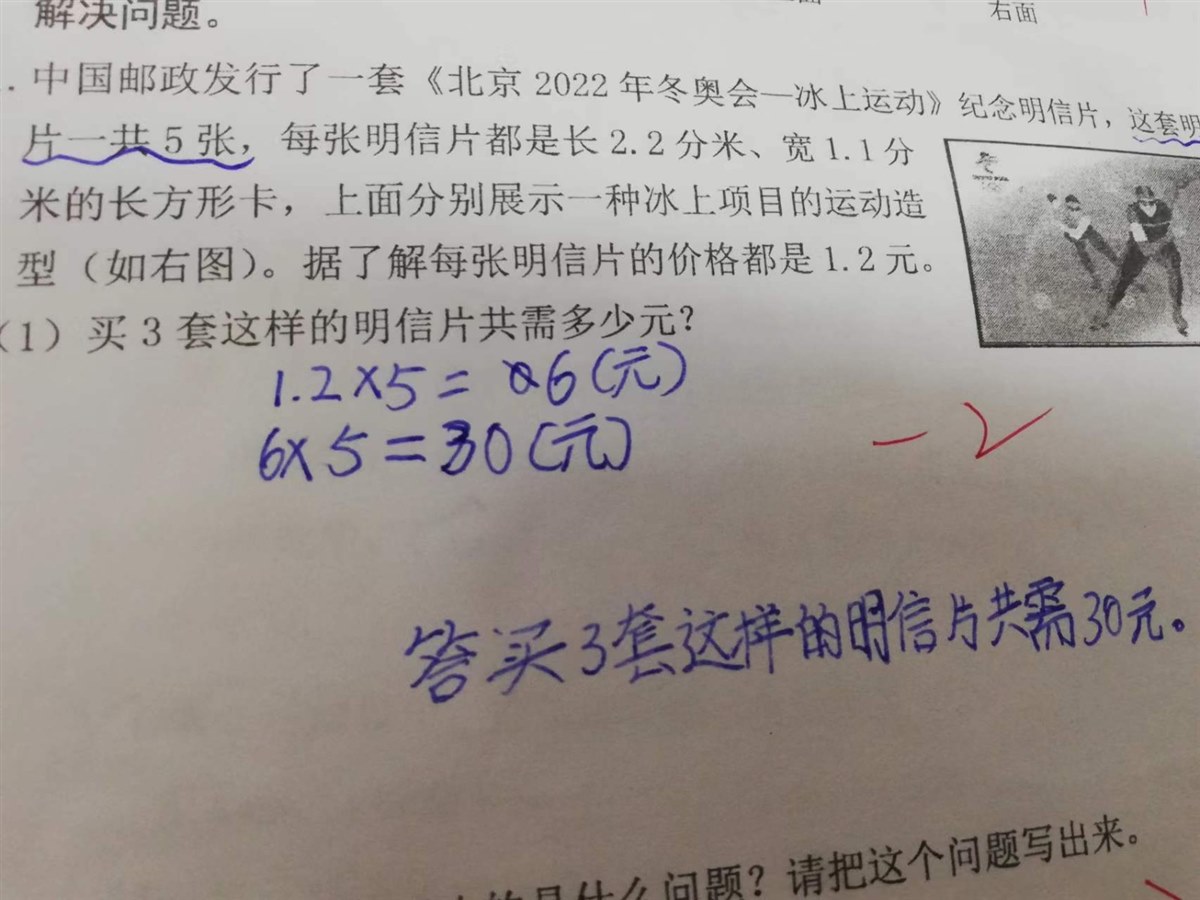 解决问题。
右面
. 中国邮政发行了一套《北京 2022 年冬奥会—冰上运动》纪念明信片，这套明
片一共 5 张，每张明信片都是长 2.2 分米、宽 1.1 分
米的长方形卡，上面分别展示一种冰上项目的运动造
型（如右图）。据了解每张明信片的价格都是 1.2 元。
（1）买 3 套这样的明信片共需多少元？
1.2×5= 6(元)
6×5=30(元)
-2
答买3套这样的明信片共需30元。
是什么问题？请把这个问题写出来。